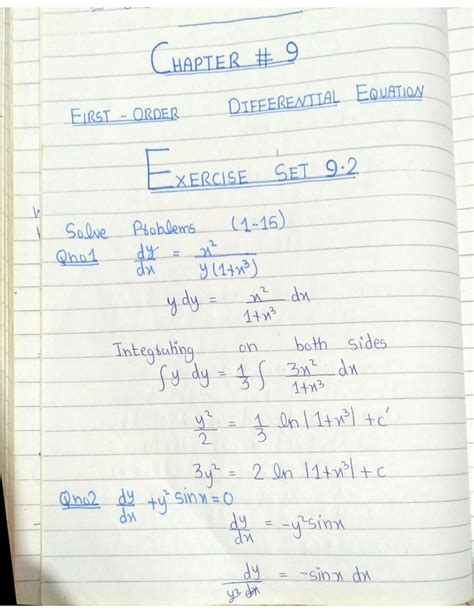 CHAPTER # 9
FIRST - ORDER DIFFERENTIAL EQUATION
EXERCISE SET 9.2
Solve Problems (1-16)
Qno1 dy/dx = x²/y(1+x³)
y dy = x²/1+x³ dx
Integrating on both sides
∫y dy = 1/3 ∫ 3x²/1+x³ dx
y²/2 = 1/3 ln|1+x³| + c'
3y² = 2 ln |1+x³| + c
Qno2 dy/dx + y² sinx = 0
dy/dx = -y² sinx
dy/y² = -sinx dx